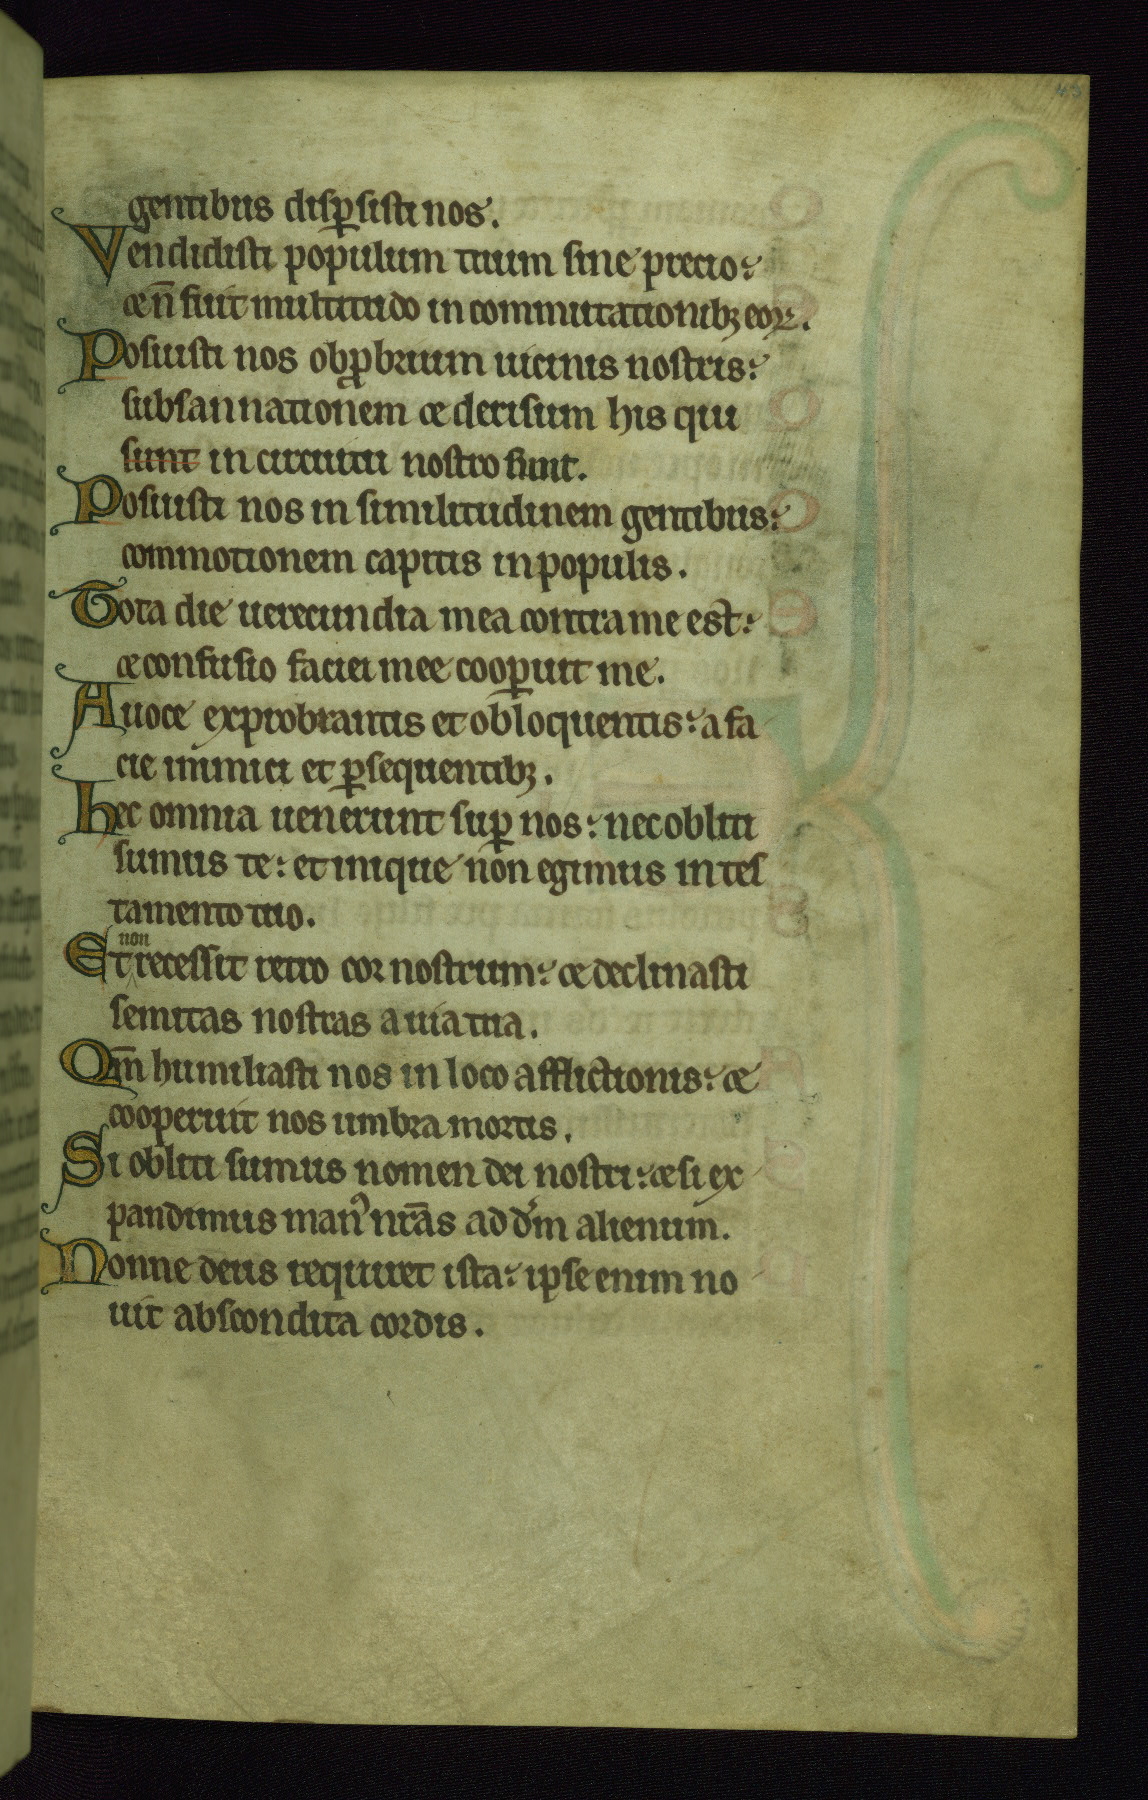 45
gentibus disꝑsisti nos.
Vendidisti populum tuum sine precio:
⁊ n̄ fuit multitudo in commutationibꝫ eoꝝ.
Posuisti nos obꝓbrium uicinis nostris:
subsannationem ⁊ derisum his qui
sunt in circuitu nostro sunt.
Posuisti nos in similitudinem gentibus:
commotionem capitis in populis.
Tota die uerecundia mea contra me est:
⁊ confusio faciei mee cooꝑuit me.
A uoce exprobrantis et obloquentis: a fa
cie inimici et ꝑsequentibꝫ.
hec omnia uenerunt suꝑ nos: nec obliti
sumus te: et inique non egimus in tes
tamento tuo.
non
Et recessit retro cor nostrum: ⁊ declinasti
semitas nostras a uia tua.
Qm̄ humiliasti nos in loco afflictionis: ⁊
cooperuit nos umbra mortis.
Si obliti sumus nomen dei nostri: ⁊ si ex
pandimus manꝰ nr̄as ad dm̄ alienum.
Nonne deus requiret ista: ipse enim no
uit abscondita cordis.